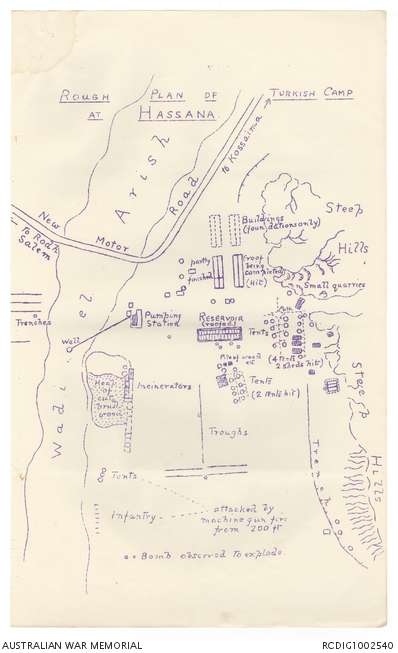 ROUGH PLAN OF TURKISH CAMP
AT HASSANA.
Wadi el Arish
New Motor Road
to Kossaima
to Rodh
Salem
Buildings
(foundations only)
Steep
Hills
partly
finished
roof
being
completed
(Hit)
Small quarries
Trenches
Pumping
Station
RESERVOIR
(roofed)
Tents
Well
(4 tents
2 sheds hit)
Steep
Hills
Heap
of
cut
brush
wood
Incinerators
Tents
(2 tents hit)
Troughs
Trench
Tents
Infantry
attacked by
machine gun fire
from 200 ft
Bomb observed to explode.
AUSTRALIAN WAR MEMORIAL
RCDIG1002540